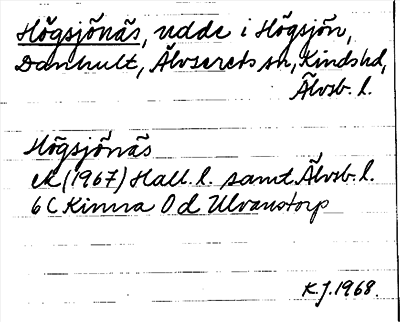 Högsjönäs, udde i Högsjön,
Danhult, Älvsereds sn, Kinds hd,
Älvsb. l.
Högsjönäs
ek (1967) Hall. l. samt Älvsb. l.
6 C Kinna 0 d Ulvanstorp
K.J. 1968.